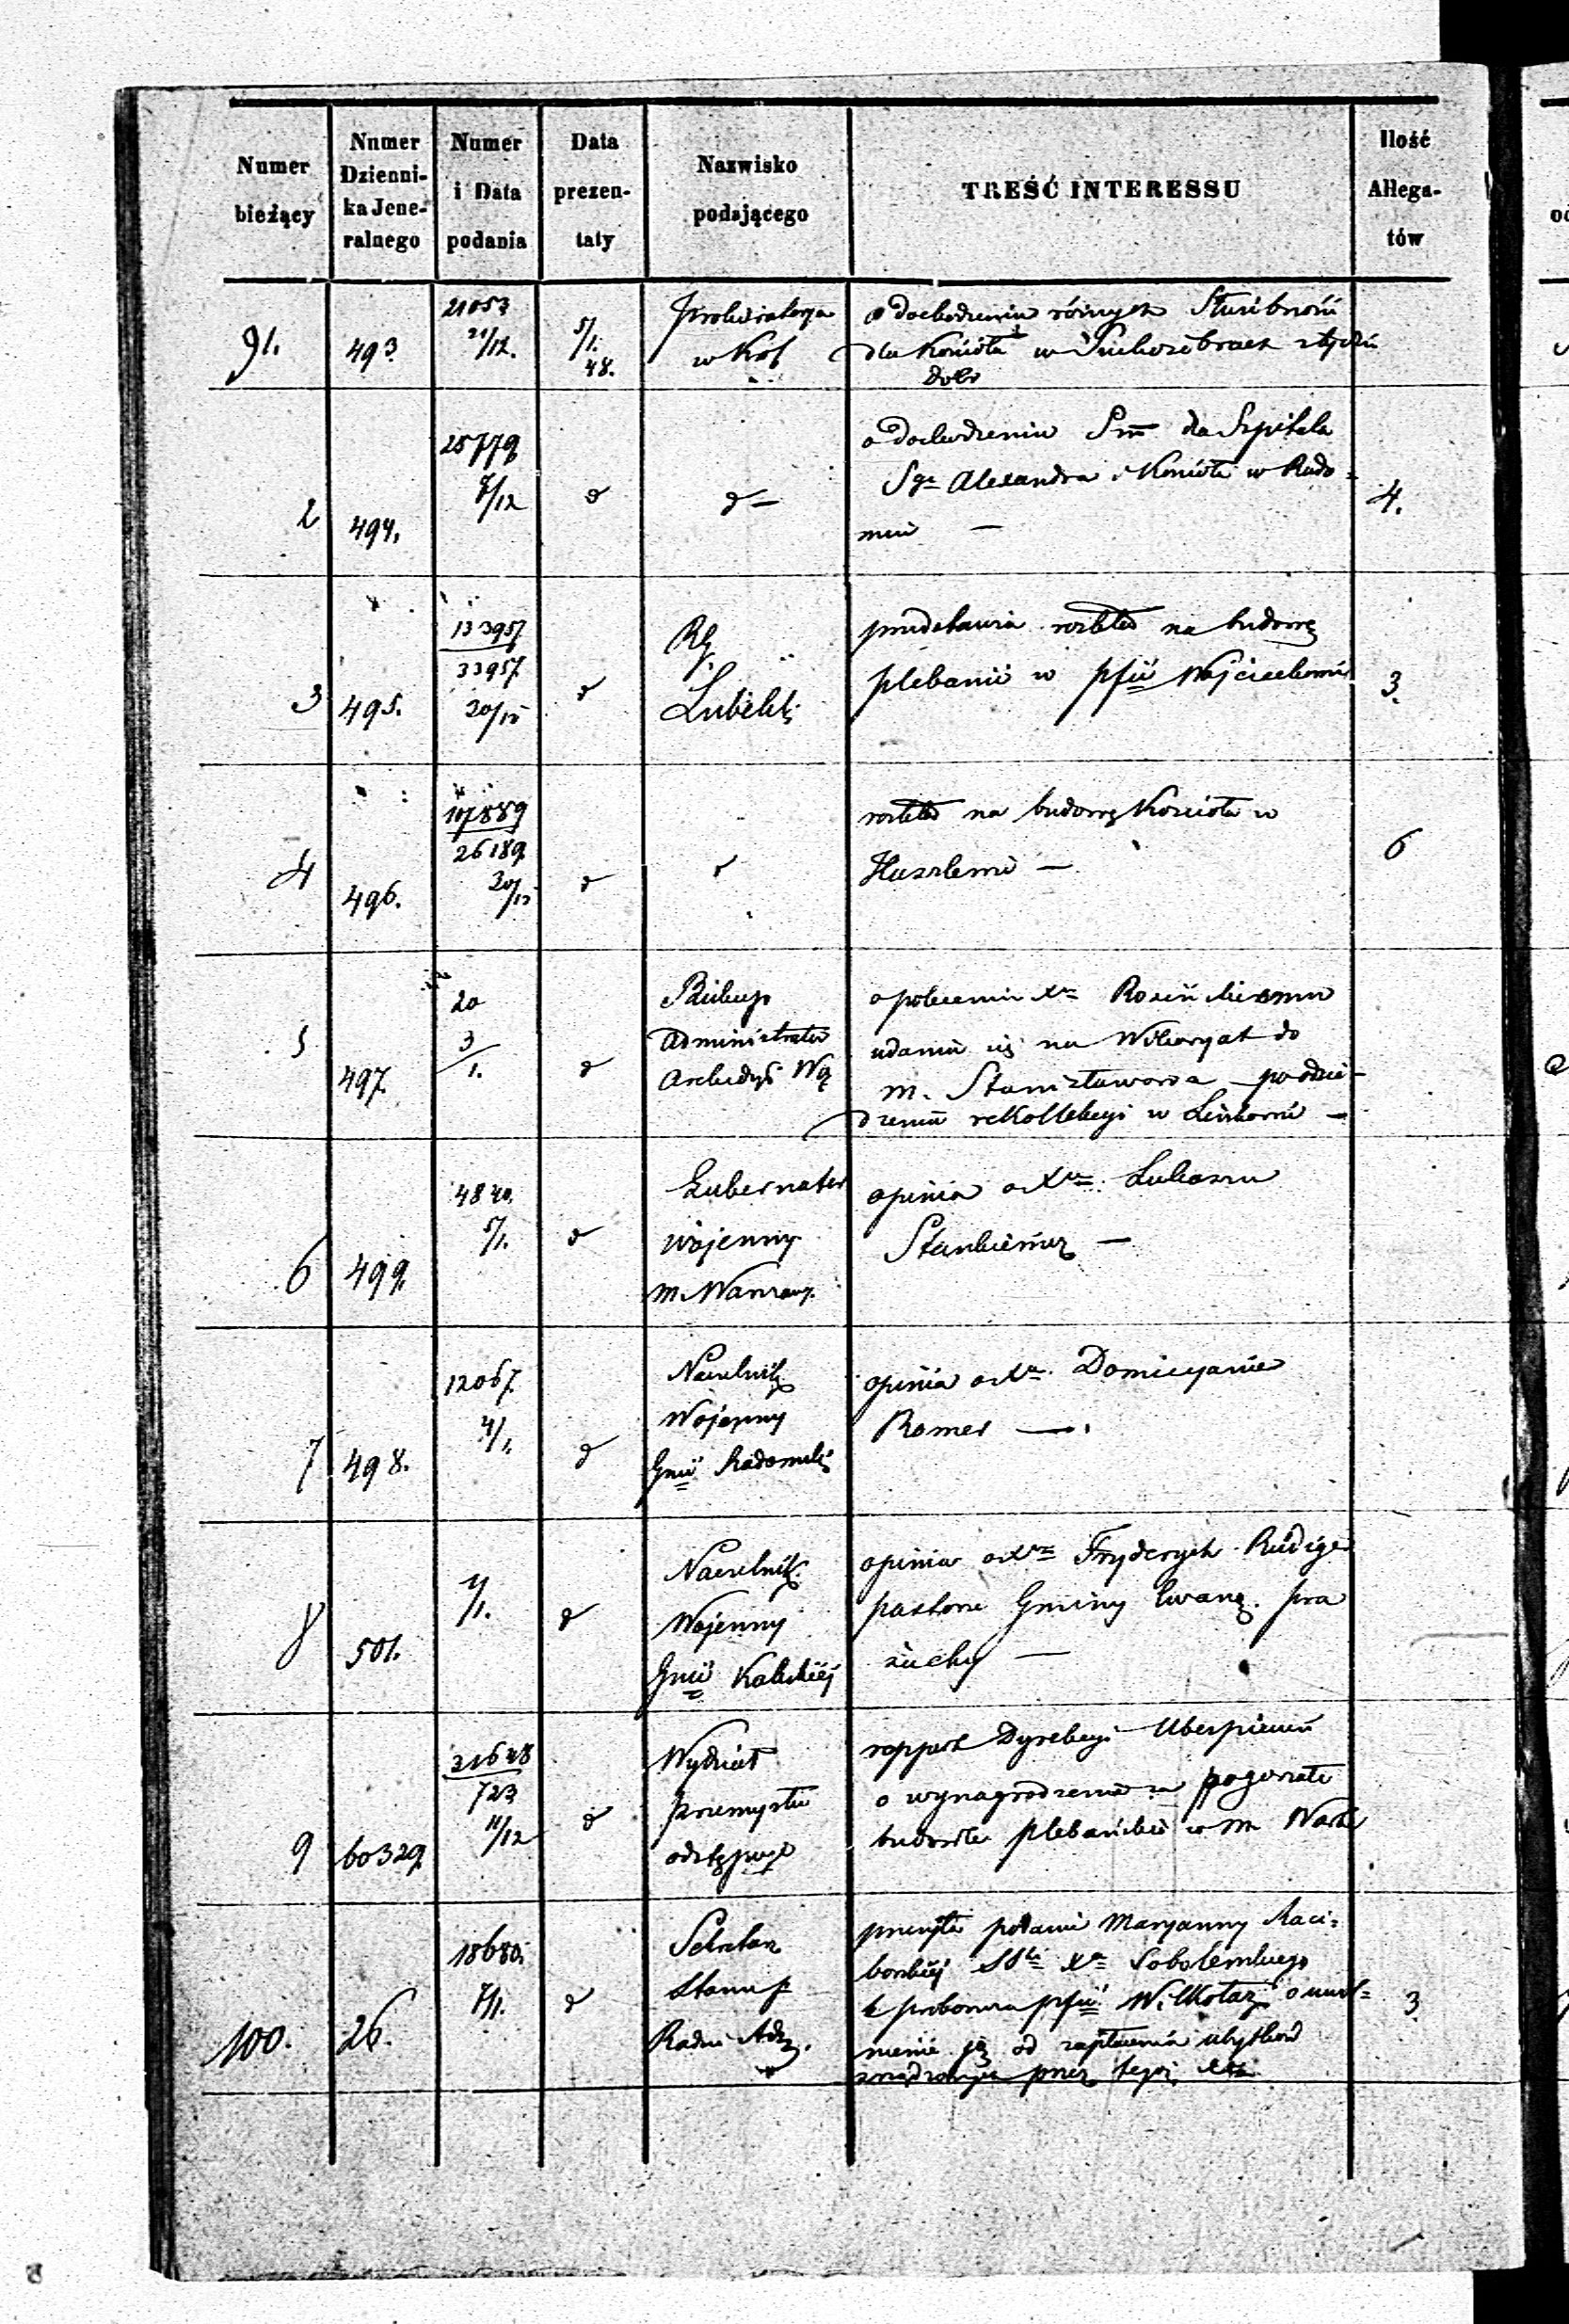 Numer bieżący
Numer Dziennika Jeneralnego
Numer i Data podania
Data prezentaty
Nazwisko podającego
TREŚĆ INTERESSU
Ilość Allegatów
91. 493. 21053 21/12. 5/1. 48. w
o dochodzeniu różnych Służebności
dla Kościoła w
dóbr
2 494. 25779 d d —
o dochodzeniu Sm̄ dla Szpitala
Sgo Alexandra i Kościoła w Rado-
miu —
4.
3 495. 133957 33957 d
RG
Lubelski
przedstawia rozkład na budowę
plebanii w pfii Wojciechowie
3.
4 496. 107889 26189 d d
rozkład na budowę Kościoła w
Huszlewie —
6
5 497. 20 3/1. d
Biskup
Administrator
Archidyś
o poleceniu Xu
udania się na Wikaryat do
m. Stanisławowa po
rekollekcyi w
6 499. 4840. 5/1. d
Gubernator
wojenny
m. Warszawy.
opinia o Xu Łukaszu
Stankiewicz —
7 498. 12067. 4/1. d
Naczelnik
Wojenny
Gnii Radomskiej
opinia o Xu Domicyanie
Romer —
8 501. d
Naczelnik
Wojenny
Gnii Kaliskiej
opinia o Xu Fryderyk Rüdiger
pastorze Gminy Ewang. Pra
żuchy —
9 60329. 723 11/12 d
Wydział
przemysłu
odstępuje
rapport Dyrekcyi Ubezpieczeń
o wynagrodzenie za pogorzałe
budowle plebańskie w m
100. 26. 18680. 7/1. d
Sekretarz
Stanu p
Radzie Adm.
przesyła podanie Maryanny Raci-
borskiej Xa Sobolewskiego
proboszcza pfii Wilkołaz o uwol-
nienie jej od zapłacenia
przez tegoż Xa
3